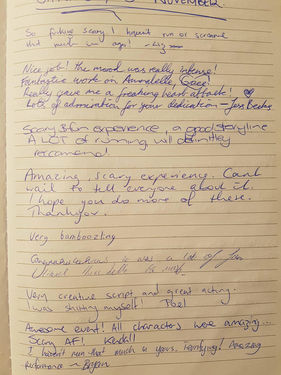 NOVEMBER.
So fucking scary! I haven't run or screamed
that much in ages!
Nice job! the mood was really intense!
Fantastic work on Annabelle, Grace!
Really gave me a freaking heart attack!
Lots of admiration for your dedication - Jess
Scary & fun experience, a good storyline
A LOT of running will definitley
reccomend!
Amazing, scary experience. Cant
wait to tell everyone about it.
I hope you do more of these.
Thankyou.
Very bamboozling
it was a lot of fun
Very creative script and great acting.
I was shitting myself!
Awesome event! All characters were amazing...
Scary AF!
I haven't run that much in years. Terrifying! Amazing